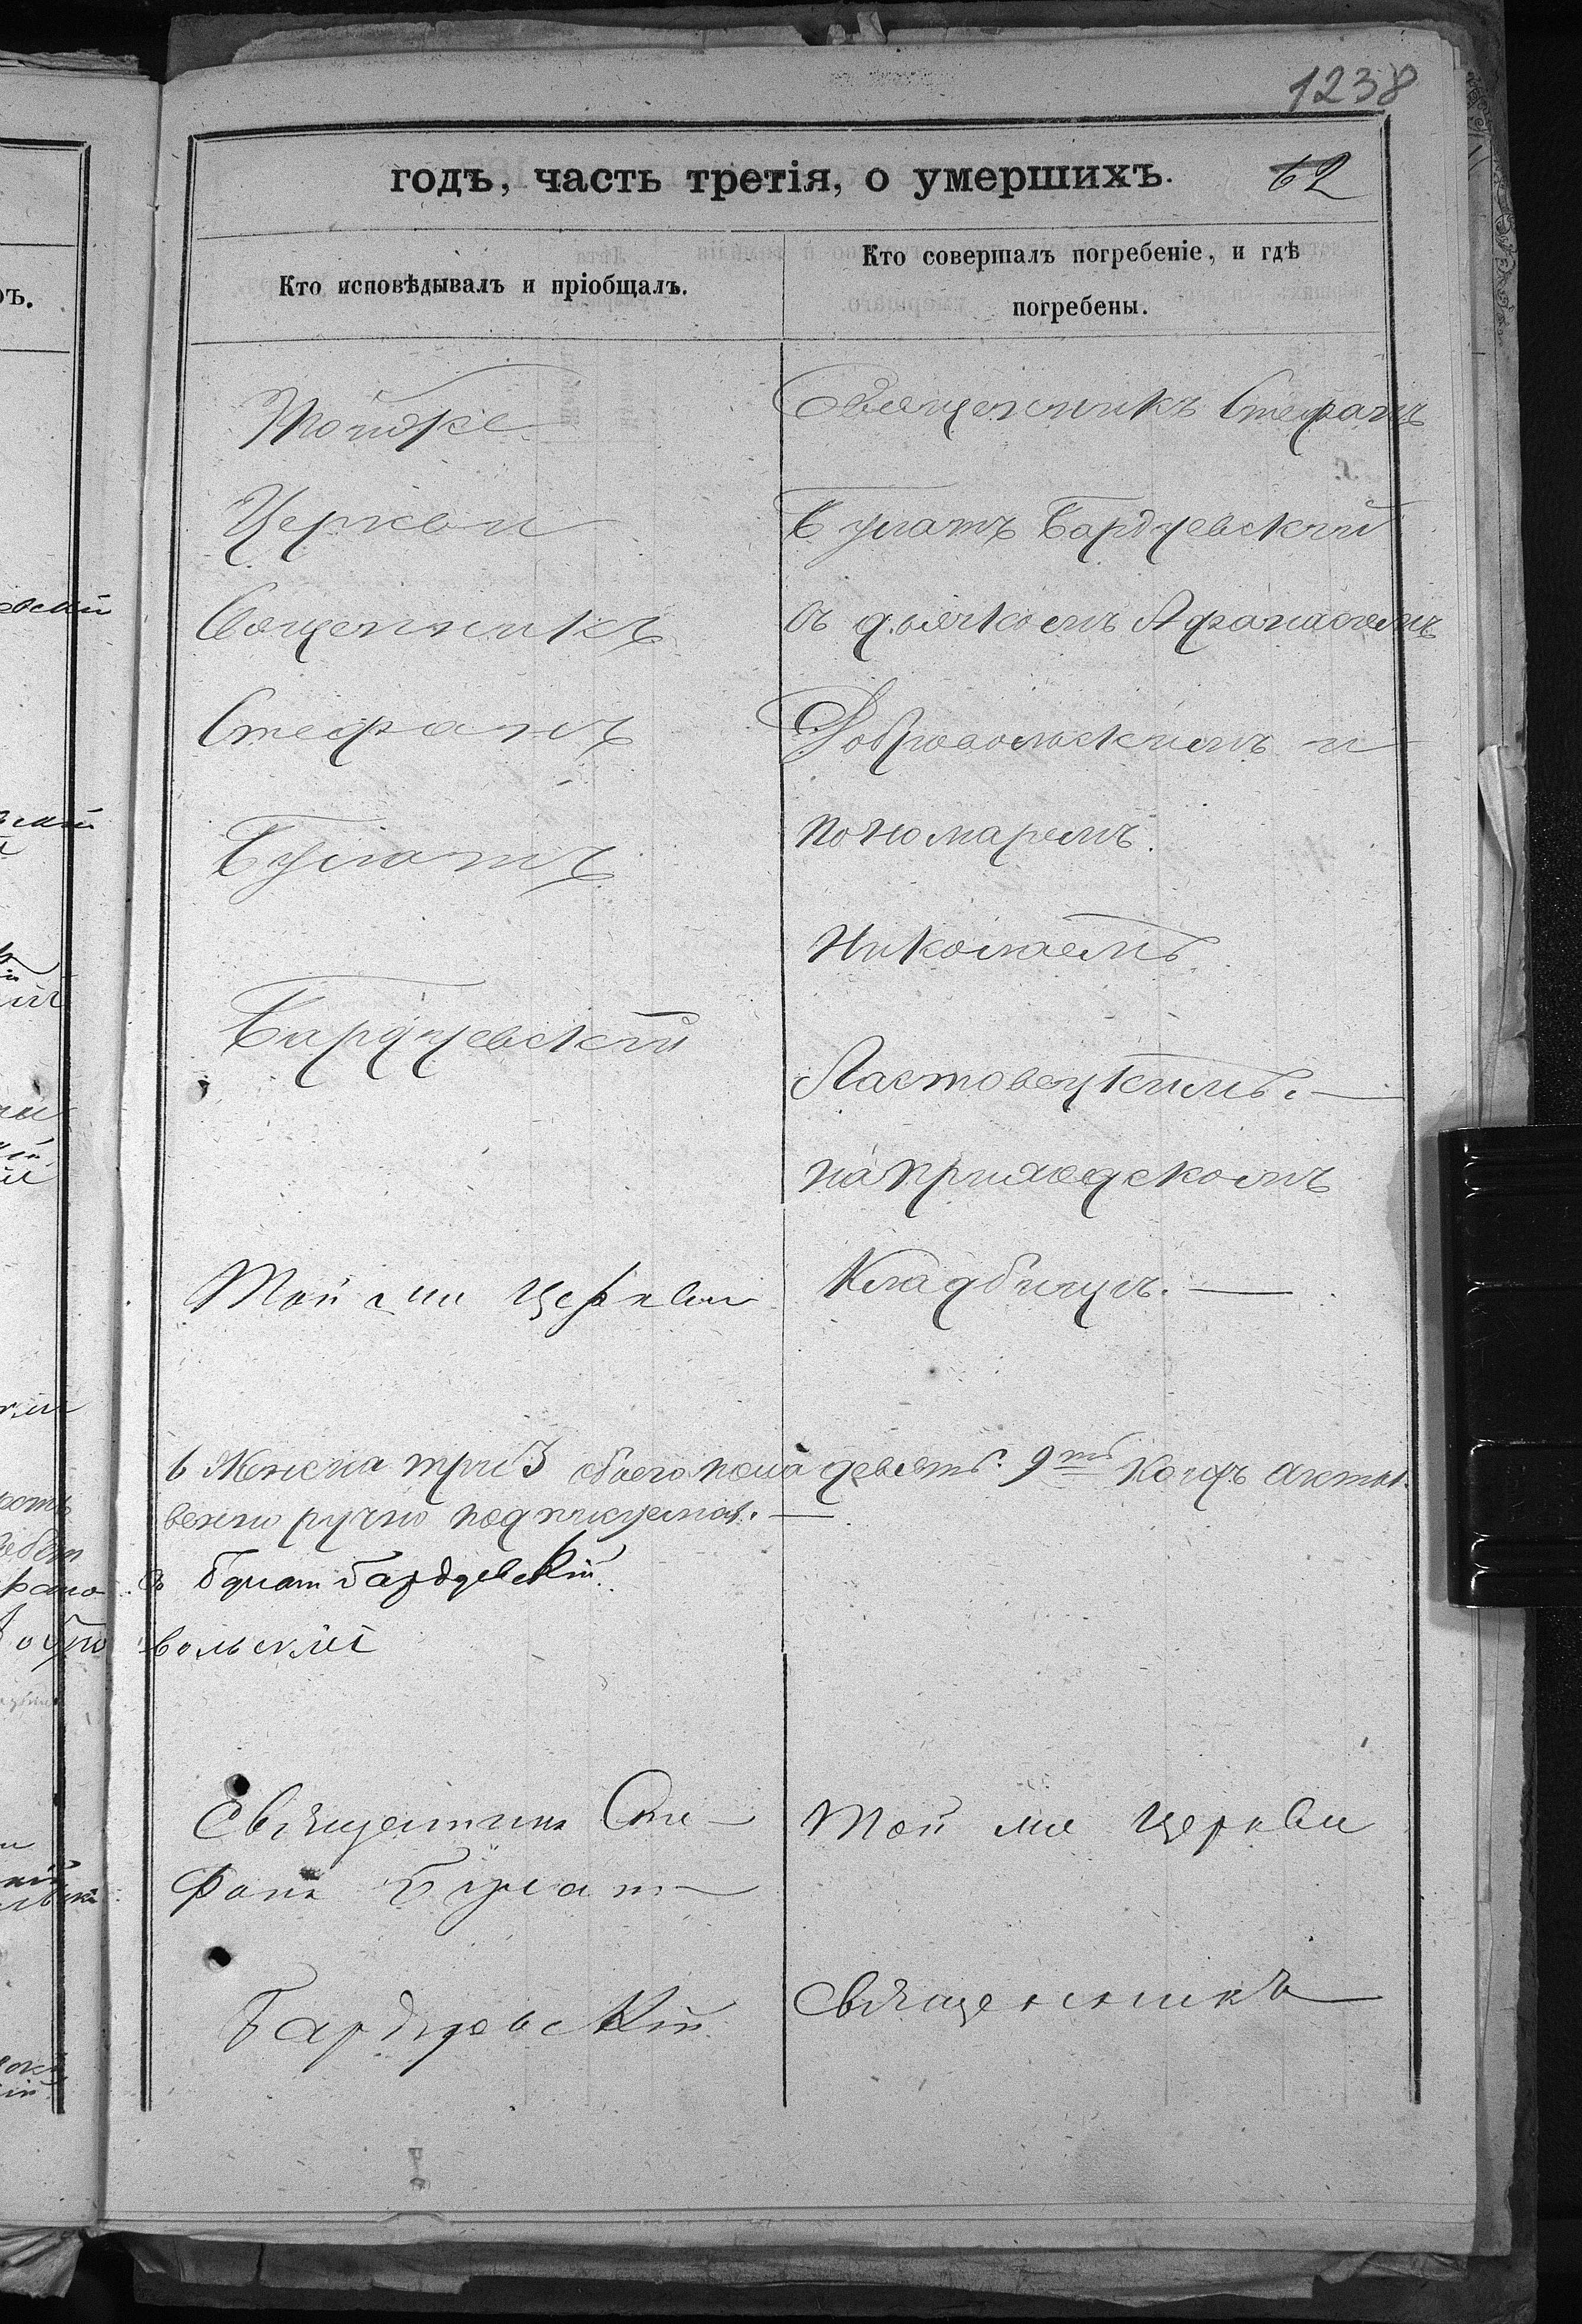 1238
годъ, часть третія, о умершихъ.
62
Кто исповѣдывалъ и пріобщалъ.
Кто совершалъ погребеніе, и гдѣ
погребены.
Тойже
Церкви
Священникъ
Стефанъ
Булатъ
Бардчевскій
Священникъ Стефанъ
Булатъ Бардчевскій
съ дьячкомъ Афанасіемъ
Добровольскимъ и
пономаремъ
Николаемъ
Ластовецкимъ. —
на приходскомъ
Кладбищѣ. —
Той же Церкви
6 женска три 3 обоего пола девять. 9ть Коихъ акты.
венно ручно подписуемся. —
Булат Бардчевскій
вольскій
Священникъ Сте-
фанъ Булат
Бардчевскій
Той же церкви
Священникъ